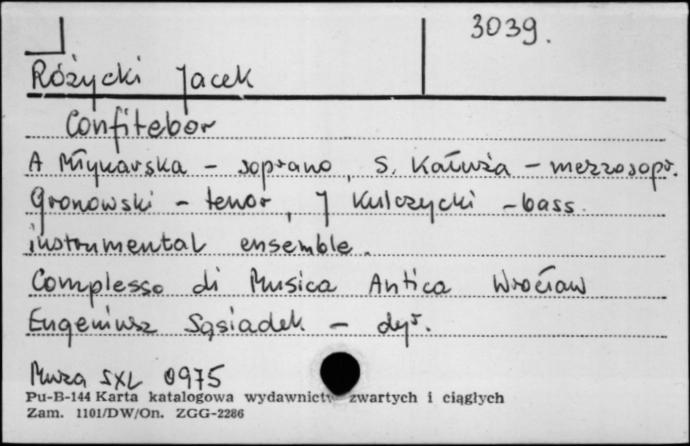 3039.
Różycki Jacek
Confitebor
A Młynarska - soprano, S. Kałuża - mezzosopr.
Gronowski - tenor, J Kulczycki - bass.
instrumental ensemble.
Complesso di Musica Antica Wrocław
Eugeniusz Sąsiadek - dyr.
Muza SXL 0975
Pu-B-144 Karta katalogowa wydawnictw zwartych i ciągłych
Zam. 1101/DW/On. ZGG-2286